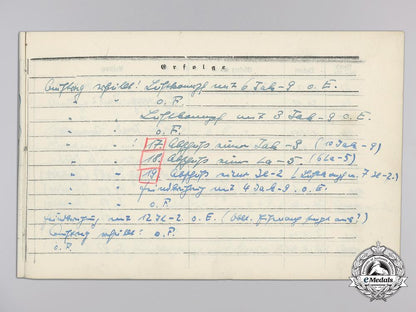 Erfolge
Auftrag erfüllt! Luftkampf mit 6 Jak-9 o. E.
" " o. F.
Luftkampf mit 3 Jak-9 o. E.
" " o. F.
" " ! 17. Abschuß einer Jak-9 (10 Jak-9)
" " 18. Abschuß einer La-5 (6 La-5)
" " 19. Abschuß einer Jl-2 (Luftkampf m. 7 Jl-2.)
" " Feindberührung mit 4 Jak-9. o. E.
" " o. F.
Feindberührung mit 12 Jl-2 o. E.
Auftrag erfüllt! o. F.
o. F.
eMedals